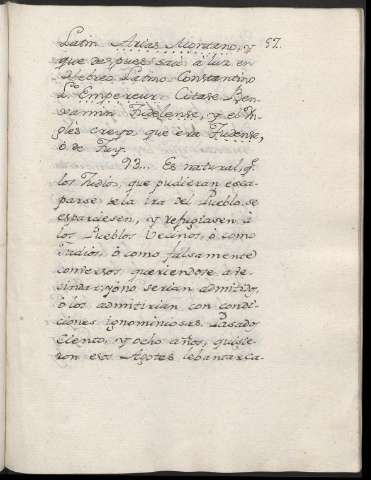 Latin Arias Montano, y 57.
que despues sacó à luz en
Hebreo Latino Constantino
L. Empereur. Citase Ben-
xamin Tudelense, y el In-
glès creyo que era Tudense,
ò de Tuy.
93... Es natural, q.
los Judios, que pudieran esca-
parse de la ira del Pueblo se
esparciesen, y refugiasen à
los Pueblos Vecinos, ò como
Judios, ò como falsamente
conversos queriendose ave-
cindar; yo no serian admitido,
ò los admitirian con condi-
ciones ignominiosas. Pasado
ciento, y ocho años, quisie-
ron esos Açotes lebantar ca-